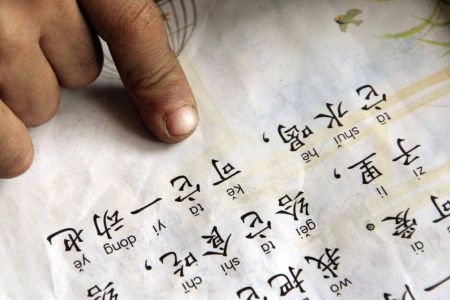 kě ài wǒ
可爱。我把它
zi lǐ gěi tā shí chī
子里，给它食吃，给
tā shuǐ hē kě tā yí dòng yě
它水喝，可它一动也